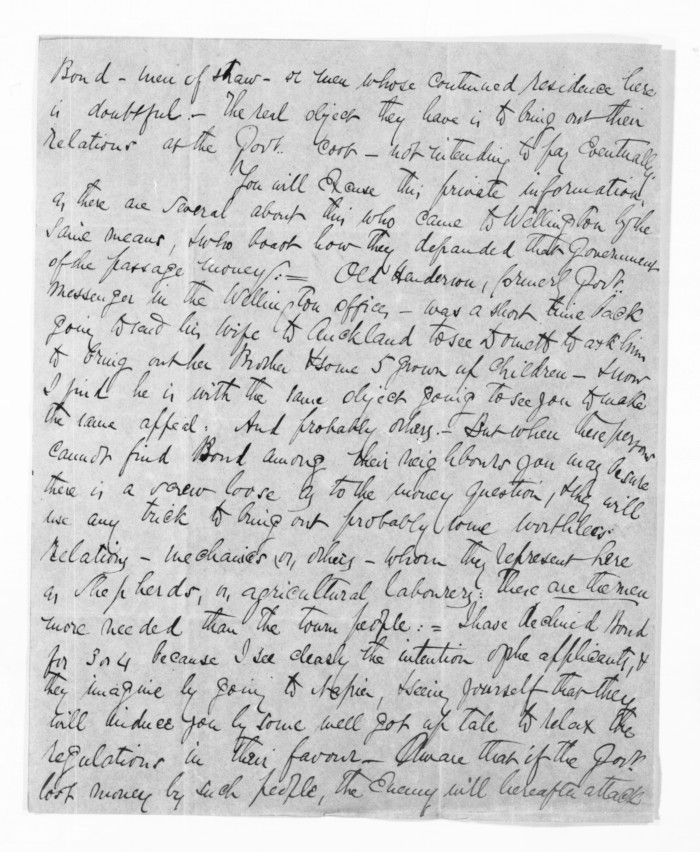 Bond - men of straw - or men whose continued residence here
is doubtful. - The real object they have is to bring out their
relations at the Govt. cost - not intending to pay eventually.
You will excuse this private information,
as there are several about this who came to Wellington by the
same means, & who boast how they defrauded that Government
of the passage money/: = Old Henderson, formerly Govt.
Messenger in the Wellington offices - was a short time back
going to send his wife to Auckland to see Domett to ask him
to bring out her Brother & some 5 grown up children - & now
I find he is with the same object going to see you to make
the same appeal: And probably others. - But when these persons
cannot find Bond among their neighbours you may be sure
there is a screw loose as to the money question, & they will
use any trick to bring out probably some worthless
relations - mechanics, or, others - whom they represent here
as shepherds, or, agricultural labourers: these are the men
more needed than the town people: = I have declined Bond
for 3 or 4 because I see clearly the intention of the applicants, &
they imagine by going to Napier, & seeing yourself that they
will induce you by some well got up tale to relax the
regulations in their favour - Aware that if the Govt.
lost money by such people, the Enemy will hereafter attack